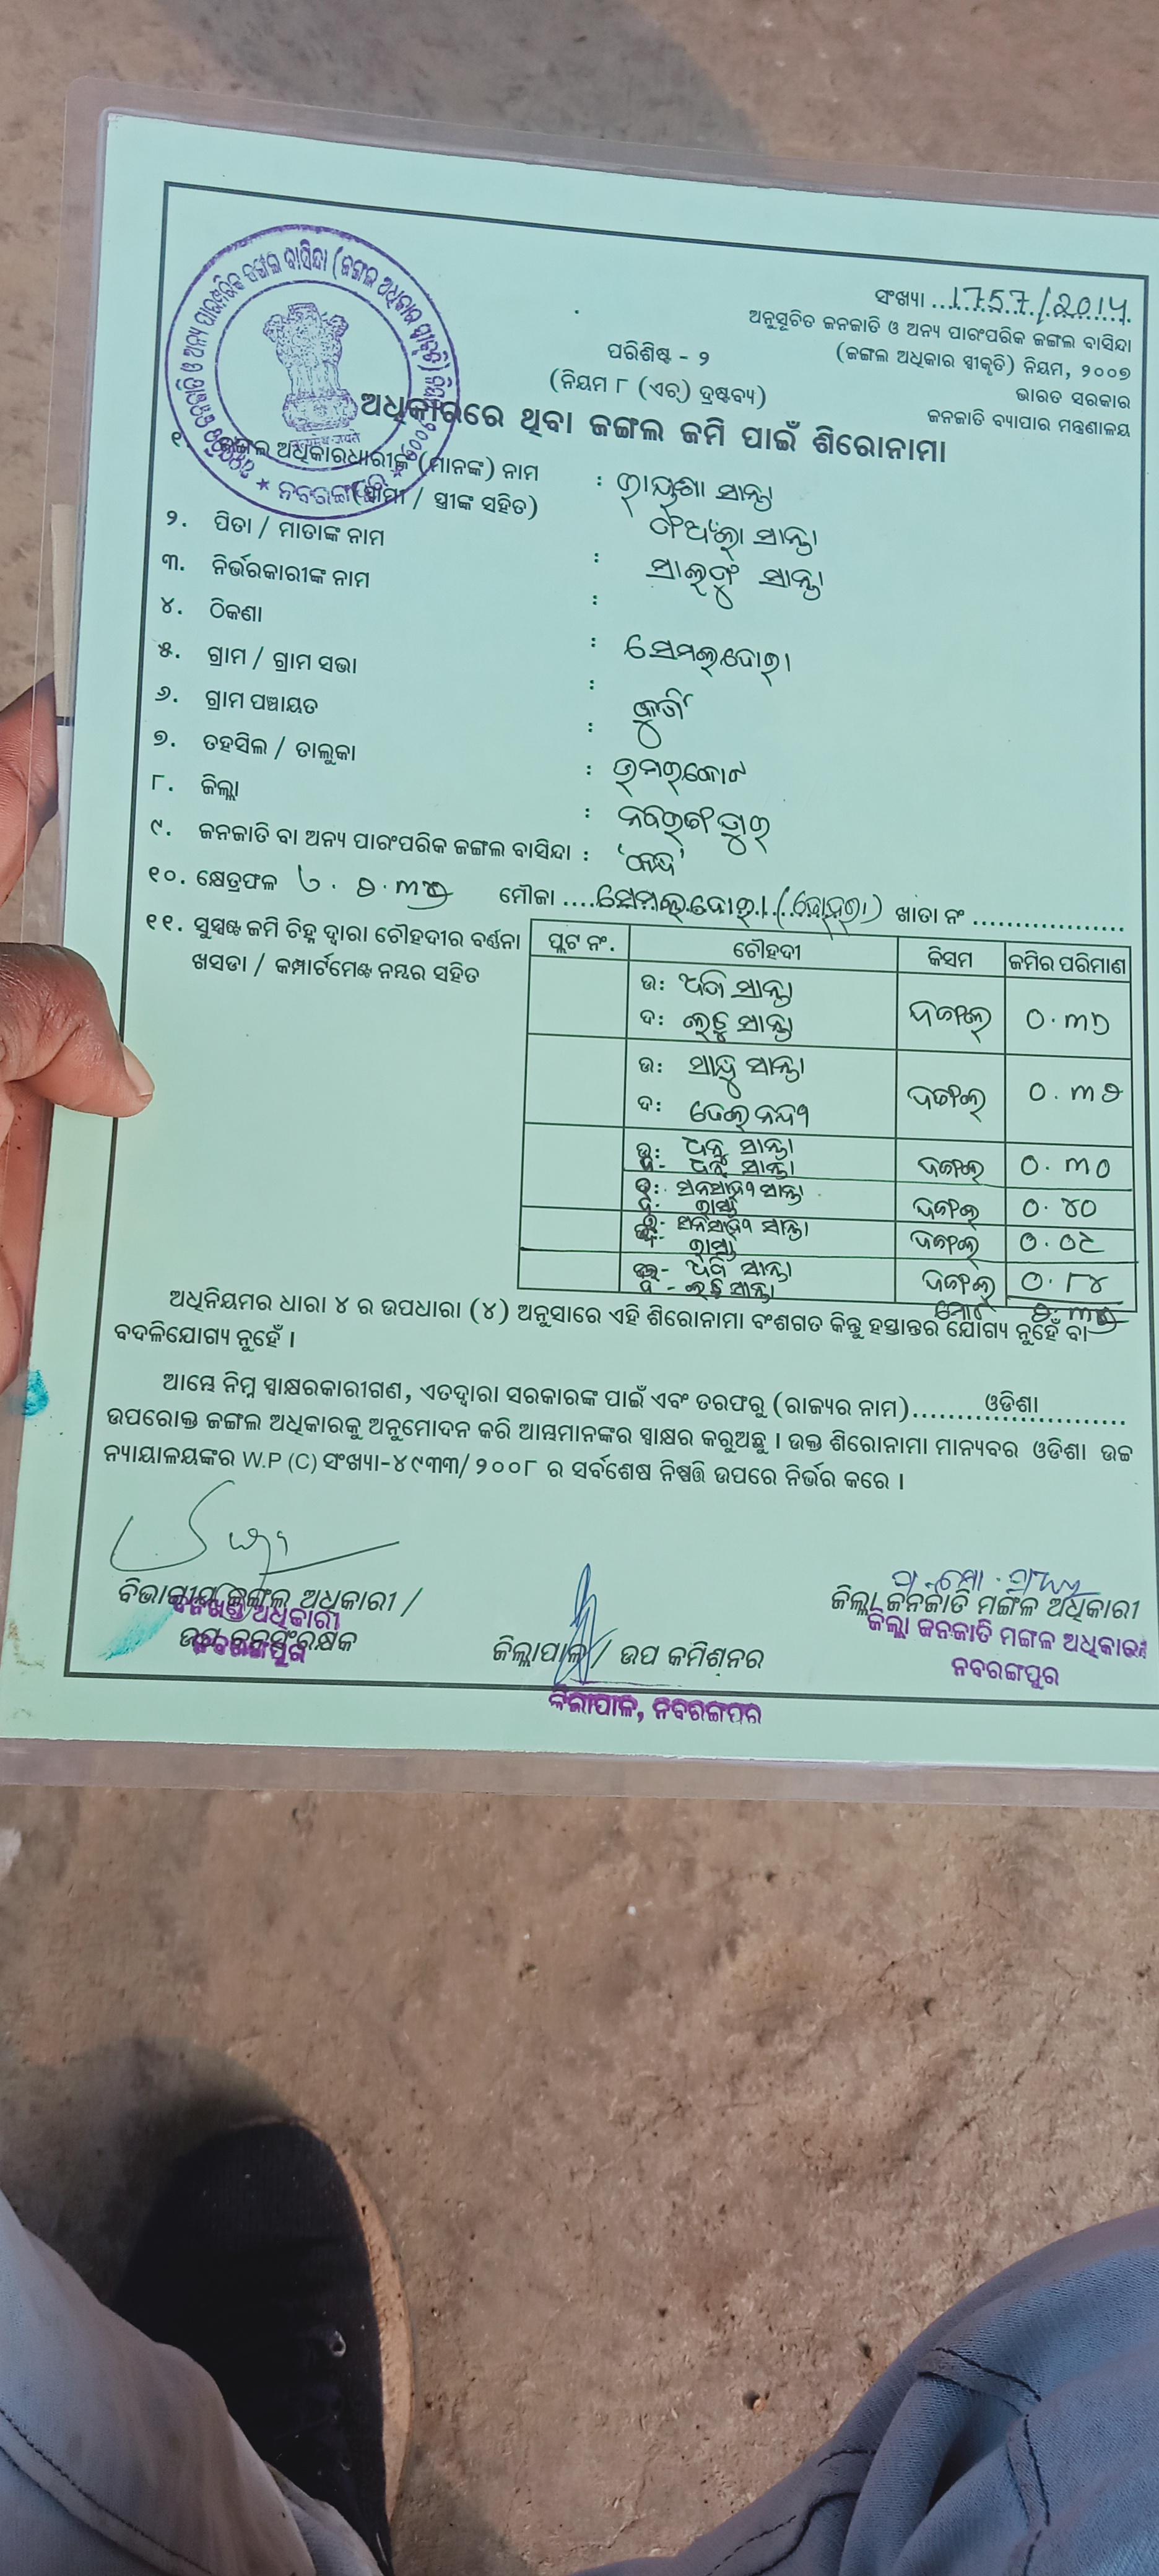 ସଂଖ୍ୟା ...1757/2014
ଅନୁସୂଚିତ ଜନଜାତି ଓ ଅନ୍ୟ ପାରଂପରିକ ଜଙ୍ଗଲ ବାସିନ୍ଦା
(ଜଙ୍ଗଲ ଅଧିକାର ସ୍ୱୀକୃତି) ନିୟମ, ୨୦୦୭
ଭାରତ ସରକାର
ଜନଜାତି ବ୍ୟାପାର ମନ୍ତ୍ରଣାଳୟ
ପରିଶିଷ୍ଟ - ୨
(ନିୟମ ୮ (ଏଚ୍) ଦ୍ରଷ୍ଟବ୍ୟ)
ଅଧିକାରରେ ଥିବା ଜଙ୍ଗଲ ଜମି ପାଇଁ ଶିରୋନାମା
୧. ଜଙ୍ଗଲ ଅଧିକାରଧାରୀଙ୍କ (ମାନଙ୍କ) ନାମ :
(ସ୍ୱାମୀ / ସ୍ତ୍ରୀଙ୍କ ସହିତ) ସାନ୍ତା
୨. ପିତା / ମାତାଙ୍କ ନାମ : ସାନ୍ତା
୩. ନିର୍ଭରକାରୀଙ୍କ ନାମ :
୪. ଠିକଣା : ସେମଲଦୋରା
୫. ଗ୍ରାମ / ଗ୍ରାମ ସଭା :
୬. ଗ୍ରାମ ପଞ୍ଚାୟତ :
୭. ତହସିଲ / ତାଲୁକା : ଉମରକୋଟ
୮. ଜିଲ୍ଲା : ନବରଙ୍ଗପୁର
୯. ଜନଜାତି ବା ଅନ୍ୟ ପାରଂପରିକ ଜଙ୍ଗଲ ବାସିନ୍ଦା :
୧୦. କ୍ଷେତ୍ରଫଳ ମୌଜା ....ସେମଲଦୋରା ଖାତା ନଂ ..................
୧୧. ସୁସ୍ପଷ୍ଟ ଜମି ଚିହ୍ନ ଦ୍ୱାରା ଚୌହଦୀର ବର୍ଣନା
ଖସଡା / କମ୍ପାର୍ଟମେଣ୍ଟ ନମ୍ବର ସହିତ
ପ୍ଲଟ ନଂ. ଚୌହଦୀ କିସମ ଜମିର ପରିମାଣ
ଉ: ସାନ୍ତା
ଦ: ଲଚୁ ସାନ୍ତା ଜଙ୍ଗଲ
ଉ: ସାଧୁ ସାନ୍ତା
ଦ: ଜଙ୍ଗଲ
ଉ: ଧନୁ ସାନ୍ତା
ଦ- ଧନୁ ସାନ୍ତା ଜଙ୍ଗଲ ୦.୩୦
ଉ: ସାନ୍ତା
ଦ: ରାସ୍ତା ଜଙ୍ଗଲ ୦.୪୦
ଉ- ସାନ୍ତା
ଦ- ରାସ୍ତା ଜଙ୍ଗଲ ୦.୦୯
ଉ- ସାନ୍ତା
ଦ - ସାନ୍ତା ଜଙ୍ଗଲ ୦.୮୪
ମୋଟ
ଅଧିନିୟମର ଧାରା ୪ ର ଉପଧାରା (୪) ଅନୁସାରେ ଏହି ଶିରୋନାମା ବଂଶଗତ କିନ୍ତୁ ହସ୍ତାନ୍ତର ଯୋଗ୍ୟ ନୁହେଁ ବା
ବଦଳିଯୋଗ୍ୟ ନୁହେଁ ।
ଆମ୍ଭେ ନିମ୍ନ ସ୍ୱାକ୍ଷରକାରୀଗଣ, ଏତଦ୍ୱାରା ସରକାରଙ୍କ ପାଇଁ ଏବଂ ତରଫରୁ (ରାଜ୍ୟର ନାମ).........ଓଡିଶା..........
ଉପରୋକ୍ତ ଜଙ୍ଗଲ ଅଧିକାରକୁ ଅନୁମୋଦନ କରି ଆମ୍ଭମାନଙ୍କର ସ୍ୱାକ୍ଷର କରୁଅଛୁ । ଉକ୍ତ ଶିରୋନାମା ମାନ୍ୟବର ଓଡିଶା ଉଚ୍ଚ
ନ୍ୟାୟାଳୟଙ୍କର W.P (C) ସଂଖ୍ୟା-୪୯୩୩/ ୨୦୦୮ ର ସର୍ବଶେଷ ନିଷ୍ପତ୍ତି ଉପରେ ନିର୍ଭର କରେ ।
ବିଭାଗୀୟ ଜଙ୍ଗଲ ଅଧିକାରୀ /
ବନଖଣ୍ଡ ଅଧିକାରୀ
ଉପ ବନସଂରକ୍ଷକ
ନବରଙ୍ଗପୁର
ଜିଲ୍ଲାପାଳ / ଉପ କମିଶନର
ଜିଲ୍ଲାପାଳ, ନବରଙ୍ଗପୁର
ଜିଲ୍ଲା ଜନଜାତି ମଙ୍ଗଳ ଅଧିକାରୀ
ଜିଲ୍ଲା ଜନଜାତି ମଙ୍ଗଳ ଅଧିକାରୀ
ନବରଙ୍ଗପୁର